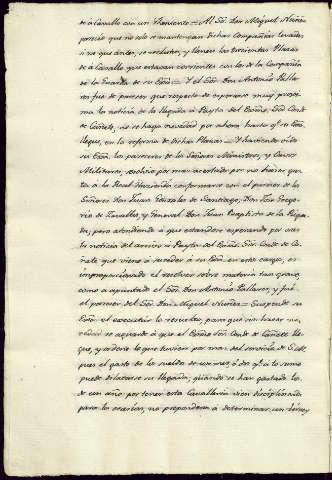 de a Cavallo con un Theniente = Al Sor. Don Miguel Nuñez
pareció que no solo se mantengan dichas Compañias levadas
ó no que antes, se reduzcan, y llenen las trecientas Plazas
de a Cavallo que estavan corrientes con las de la Compañia
de la Guardia de su Exa. = Y el Sor. Don Antonio Palla-
res fue de parecer que respecto de esperarse muy proxi-
ma la noticia de la llegada á Payta del Exmo. Sor. Conde
de Cañete, no se haga novedad por ahora hasta qe. su Exa.
llegue, en la reforma de dichas Plazas = Y haviendo oido
su Exa. los pareceres de los Señores Ministros, y Cavos
Militares, resolvio por mas acertado por no hacer gas-
tos a la Real Hacienda conformarse con el parecer de los
Señores Don Juan Gonzales de Santiago, Don Joseph Grego-
rio de Zavallos, y General Don Juan Baptista de la Rigada
da, pero atendiendo á que estandose esperando por oras
la noticia del arrivo á Payta del Exmo. Sor. Conde de Ca-
ñete que viene á suceder á su Exa. en este cargo, es
improporcionado el resolver sobre materia tan grave,
como a apuntado el Sor. Don Antonio Pallares, y fué
el parecer del Sor. Don Miguel Nuñez = Suspende su
Exa. el executar lo resuelto, para que sin hacer no-
vedad se aguarde á que el Exmo. Sor. Conde de Cañete lle-
gue, y ordene lo que tuviere por mas del servicio de S. M.
pues el gasto de los sueldos de un mes, ó dos qe. á lo sumo
puede dilatarse su llegada, quando se han gastado los
de un año por tener esta Cavalleria vien disciplinada
para la ocasion, no preponderá a determinar un